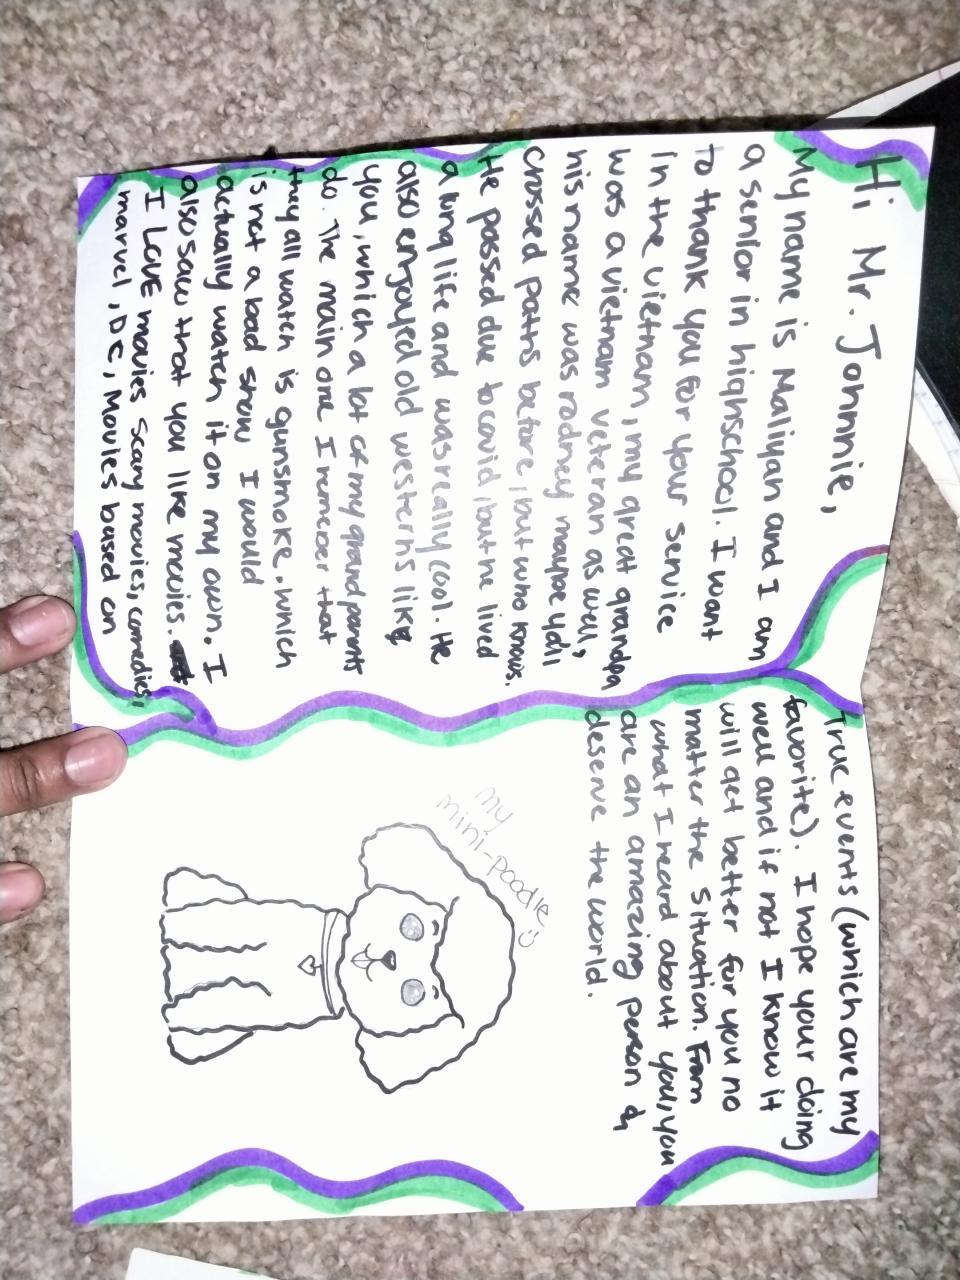 Hi Mr. Johnnie,
My name is Maliyah and I am
a senior in highschool. I want
to thank you for your service
in the vietnam, my great grandpa
was a vietnam veteran as well,
his name was rodney maybe yall
crossed paths before, but who knows.
He passed due to covid, but he lived
a long life and was really cool. He
also enjoyed old westerns like
you, which a lot of my grandparents
do. The main one I remeber that
they all watch is gunsmoke. which
is not a bad show I would
actually watch it on my own. I
also saw that you like movies.
I LOVE movies scary movies, comedies,
marvel, DC, Movies based on
True events (which are my
favorite). I hope your doing
well and if not I know it
will get better for you no
matter the situation. From
what I heard about you, you
are an amazing person &
deserve the world.
my
mini-poodle